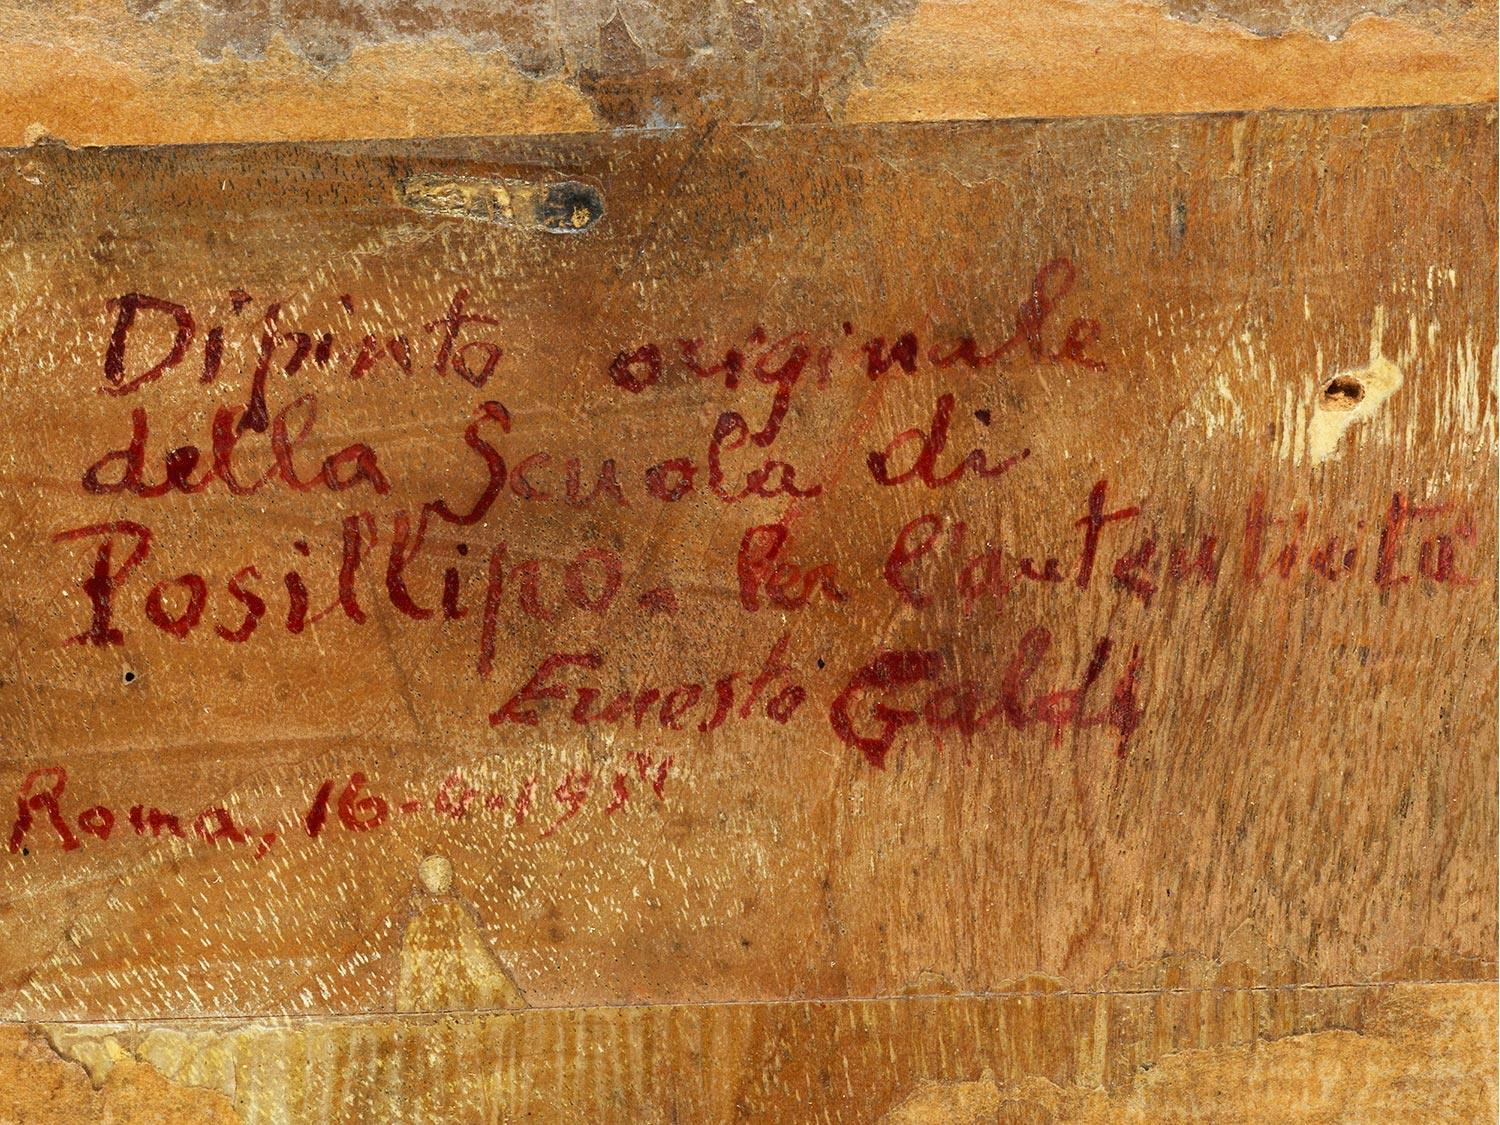 Dipinto originale
della Scuola di
Posillipo. Per l'autenticità
Ernesto Galdi
Roma, 16-6-1951